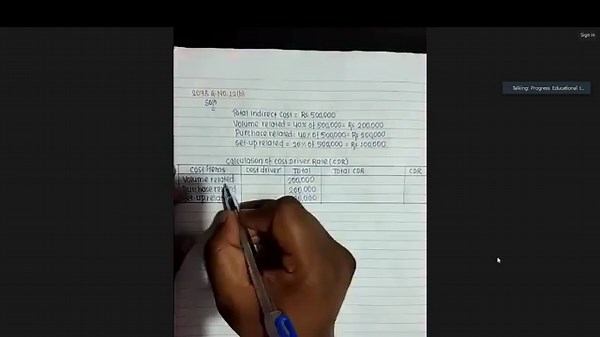 Sign in
Talking: Progress Educational I...
Soln
Total indirect cost = Rs 500,000
Volume related = 40% of 500,000 = Rs 200,000
Purchase related = 40% of 500,000 = Rs
Set-up related = 20% of 500,000 = Rs 100,000
Calculation of Cost Driver Rate (CDR)
Cost Items Cost driver Total Total CDR CDR
Volume related 200,000
Purchase 200,000
Set-up